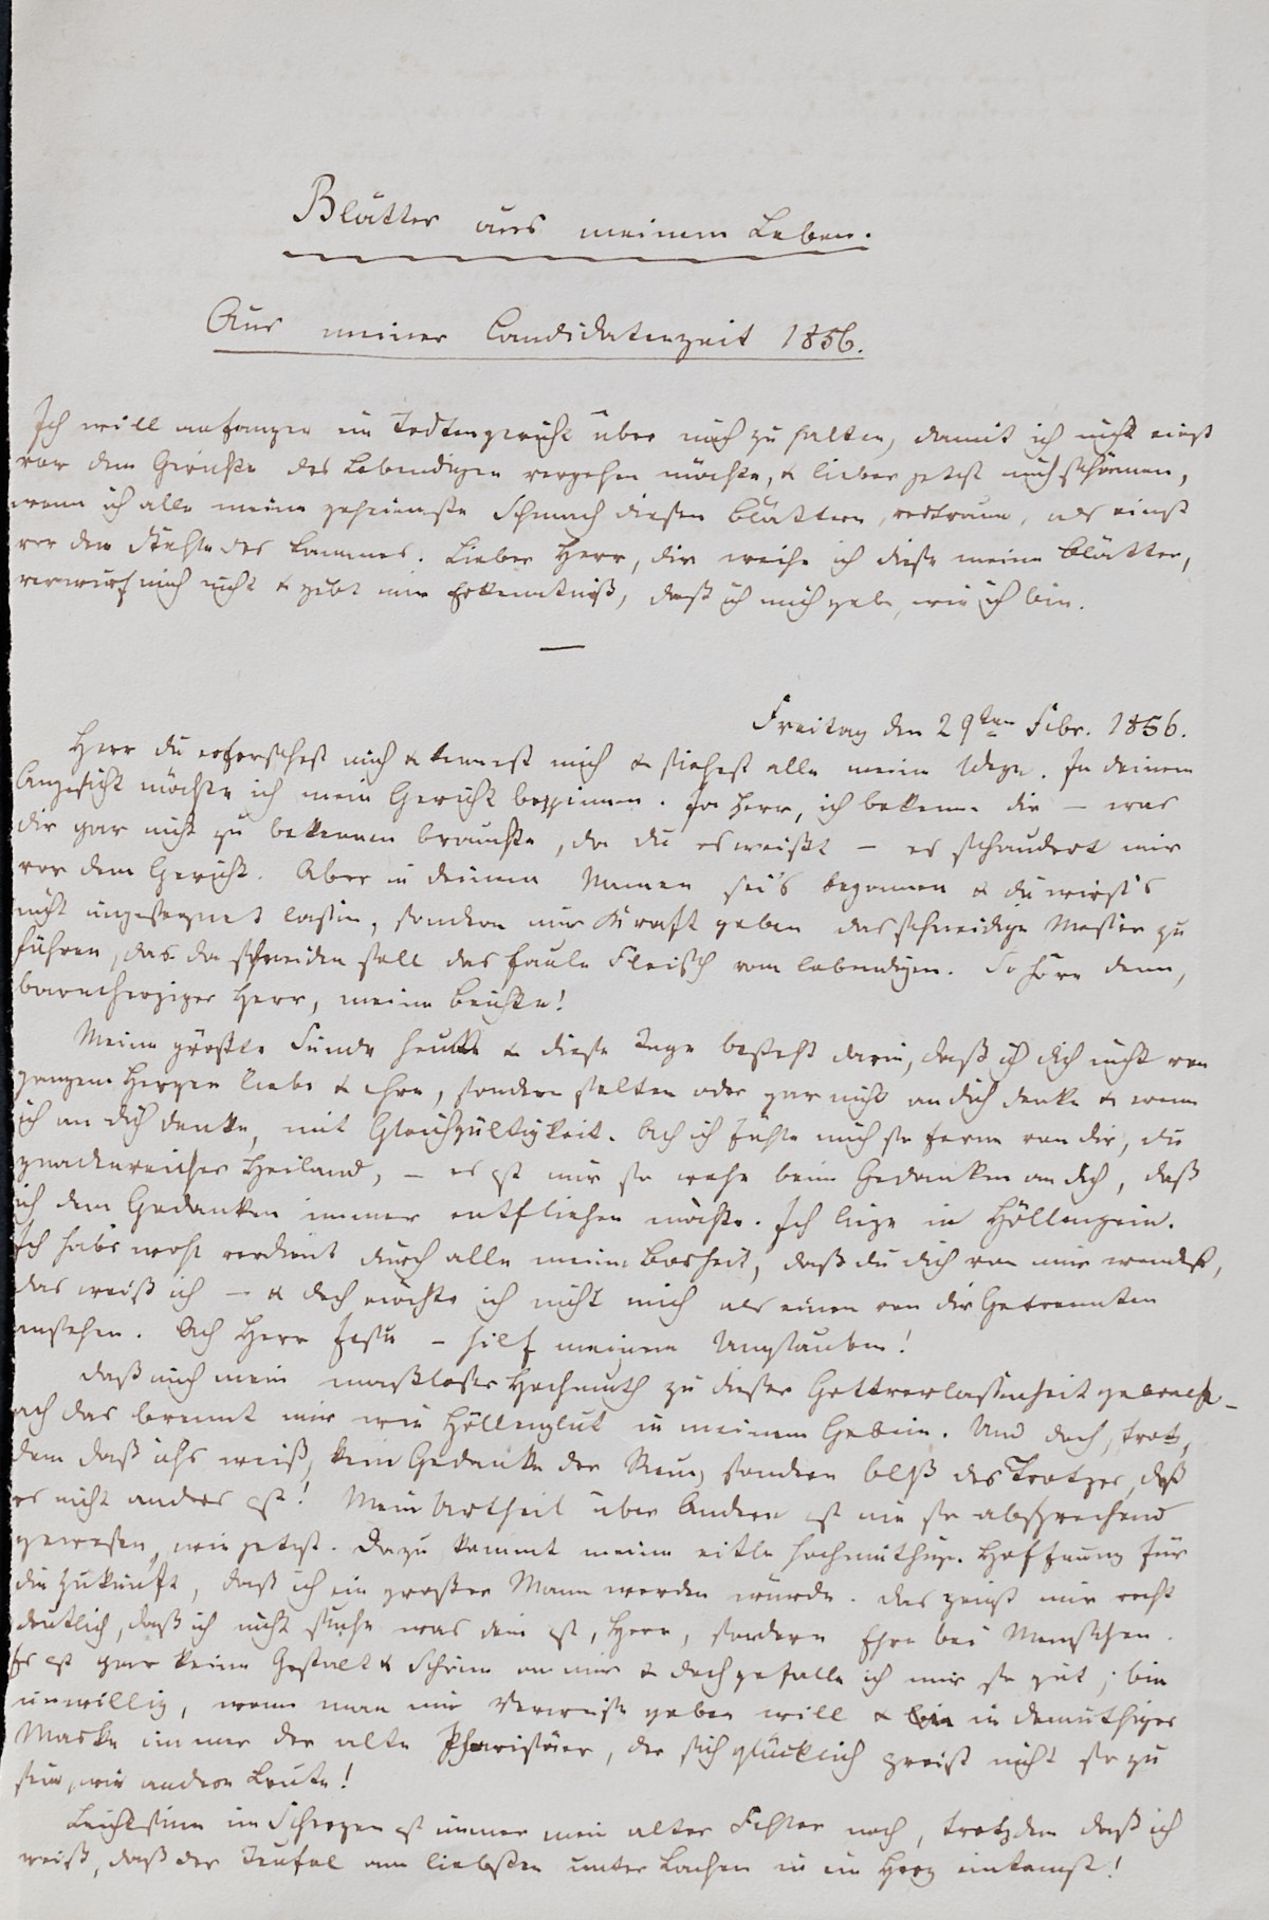 Blätter aus meinem Leben.
Aus meiner Candidatenzeit 1856.
Ich will anfangen ein Todtengericht über mich zu halten, damit ich nicht einst
vor dem Gerichte des Lebendigen vergehen möchte, & lieber jetzt mich schämen,
wenn ich alle meine geheimste Schmach diesen Blättern vertraue, als einst
vor dem Stuhle des Lammes. Lieber Herr, dir weihe ich diese meine Blätter,
verwirf mich nicht & gibt mir Erkenntniß, daß ich mich gebe, wie ich bin.
—
Freitag den 29ten Febr. 1856.
Herr du erforschest mich & kennest mich & siehest alle meine Wege. In deinem
Angesicht möchte ich mein Gericht beginnen. Ja Herr, ich bekenne dir – was
dir gar nicht zu bekennen brauchte, da du es weißt – es schaudert mir
vor dem Gericht. Aber in deinem Namen sei's begonnen & du wirst's
nicht ungesegnet lassen, sondern mir Kraft geben das schneidige Messer zu
führen, das da schneiden soll das faule Fleisch vom lebendigen. So höre denn,
barmherziger Herr, meine Beichte!
Meine größte Sünde heute & diese Tage besteht darin, daß ich dich nicht von
ganzem Herzen liebe & ehre, sondern selten oder gar nicht an dich denke & wenn
ich an dich denke, mit Gleichgültigkeit. Ach ich fühle mich so ferne von dir, du
gnadenreicher Heiland, – es ist mir so wehe beim Gedanken an dich, daß
ich dem Gedanken immer entfliehen möchte. Ich liege in Höllenpein.
Ich habe wohl verdient durch alle meine Bosheit, daß du dich von mir wendest,
das weiß ich – & doch möchte ich nicht mich als einen von dir Getrennten
ansehen. Ach Herr Jesu – hilf meinem Unglauben!
Daß mich mein maßloser Hochmuth zu dieser Gottverlassenheit gebracht –
ach das brennt mir wie Höllenglut in meinem Gebein. Und doch, trotz
dem daß ichs weiß, kein Gedanke der Reue, sondern bloß des Trotzes, daß
es nicht anders ist! Mein Urtheil über Andere ist nie so absprechend
gewesen, wie jetzt. Dazu kommt meine eitle hochmüthige Hoffnung für
die Zukunft, daß ich ein großer Mann werden würde. Das zeigt mir recht
deutlich, daß ich nicht suche was dein ist, Herr, sondern Ehre bei Menschen.
Es ist gar keine Gestalt & Schöne an mir & doch gefalle ich mir so gut; bin
unwillig, wenn man mir Verweise geben will & bin in demüthiger
Maske immer der alte Pharisäer, der sich glücklich preist nicht so zu
sein, wie andere Leute!
Leichtsinn im Scherzen ist immer mein alter Fehler noch, trotzdem daß ich
weiß, daß der Teufel am liebsten unter Lachen in ein Herz einkommt!